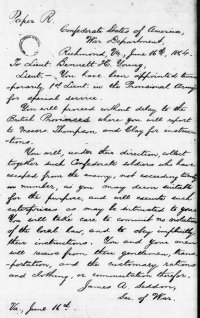 Paper R.
Confederate States of America,
War Department,
Richmond, Va., June 16th, 1864.
To Lieut. Bennett H. Young,
Lieut. – You have been appointed tem-
porarily 1st Lieut. in the Provisional Army
for special service.
You will proceed without delay to the
British Provinces where you will report
to Messrs Thompson and Clay for instruc-
tions.
You will, under their direction, collect
together such Confederate soldiers who have
escaped from the enemy, not exceeding twenty
in number, as you may deem suitable
for the purpose, and will execute such
enterprises as may be intrusted to you.
You will take care to commit no violation
of the local law, and to obey implicitly
their instructions. You and your men
will receive from these gentlemen, trans-
portation, and the customary rations
and clothing, or commutation therefor.
James A. Seddon,
Sec. of War.
Va., June 16th.